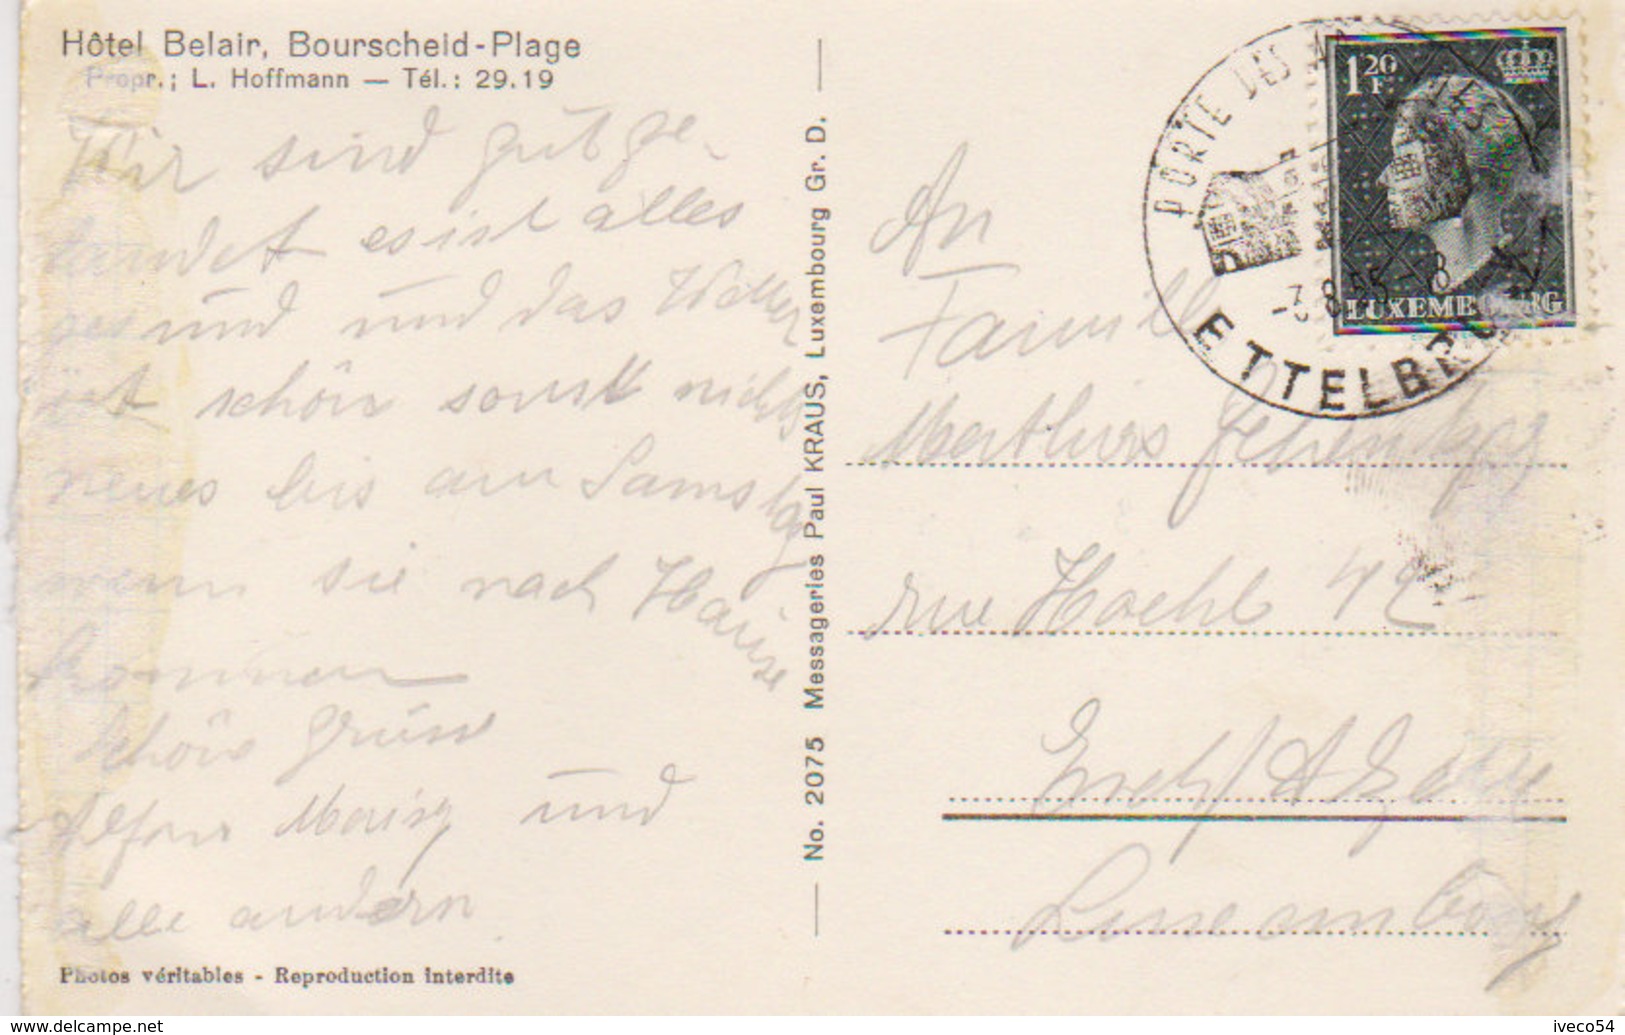 Hôtel Belair, Bourscheid-Plage
Propr.; L. Hoffmann — Tél.: 29.19
Wir sind gut ge-
landet es ist alles
gesund und das Wetter
ist schön sonst nichts
neues bis am Samstag
wenn sie nach Hause
kommen
schöne Grüße
und
alle andern
Photos véritables - Reproduction interdite
No. 2075 Messageries Paul KRAUS, Luxembourg Gr. D.
PORTE DES
-3.8.55-8
ETTELBRUCK
1 20 F.
LUXEMBOURG
An
Famille
Mathias
rue Hoehl 42
Esch/Alzette
Luxembourg
www.delcampe.net
iveco54